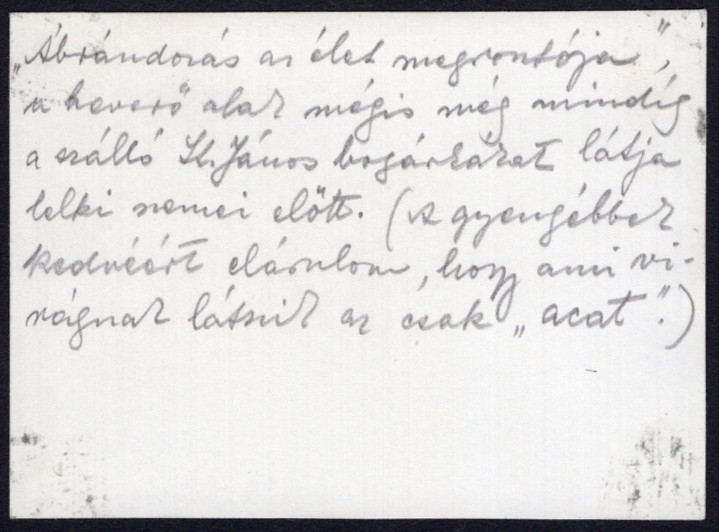 „Ábrándozás az élet megrontója",
a heverő alak mégis még mindíg
a szálló Szt. János bogárkákat látja
lelki szemei előtt. (A gyengébbek
kedvéért elárulom, hogy ami vi-
rágnak látszik az csak „acat".)